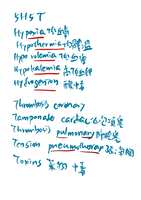 5H5T
Hypoxia 低血氧
Hypothermia 低體溫
Hypovolemia 低血容
Hypokalemia 高低血鉀
Hydrogenion 酸中毒
Thrombosis coronary
Tamponade cardiac 心包填塞
Thrombosis pulmonary 肺栓塞
Tension pneumothorax 張力氣胸
Toxins 藥物中毒